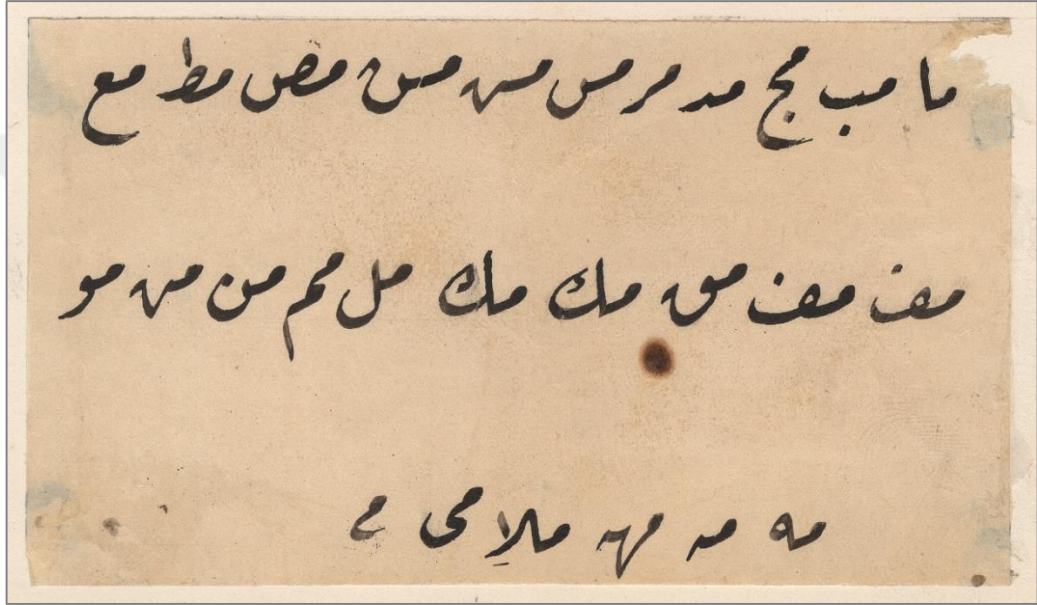 ما مب مج مد مر مس مس مس مص مط مع
مف مف مق مك مك مل مم من من مو
مه مه مه ملا مى مے